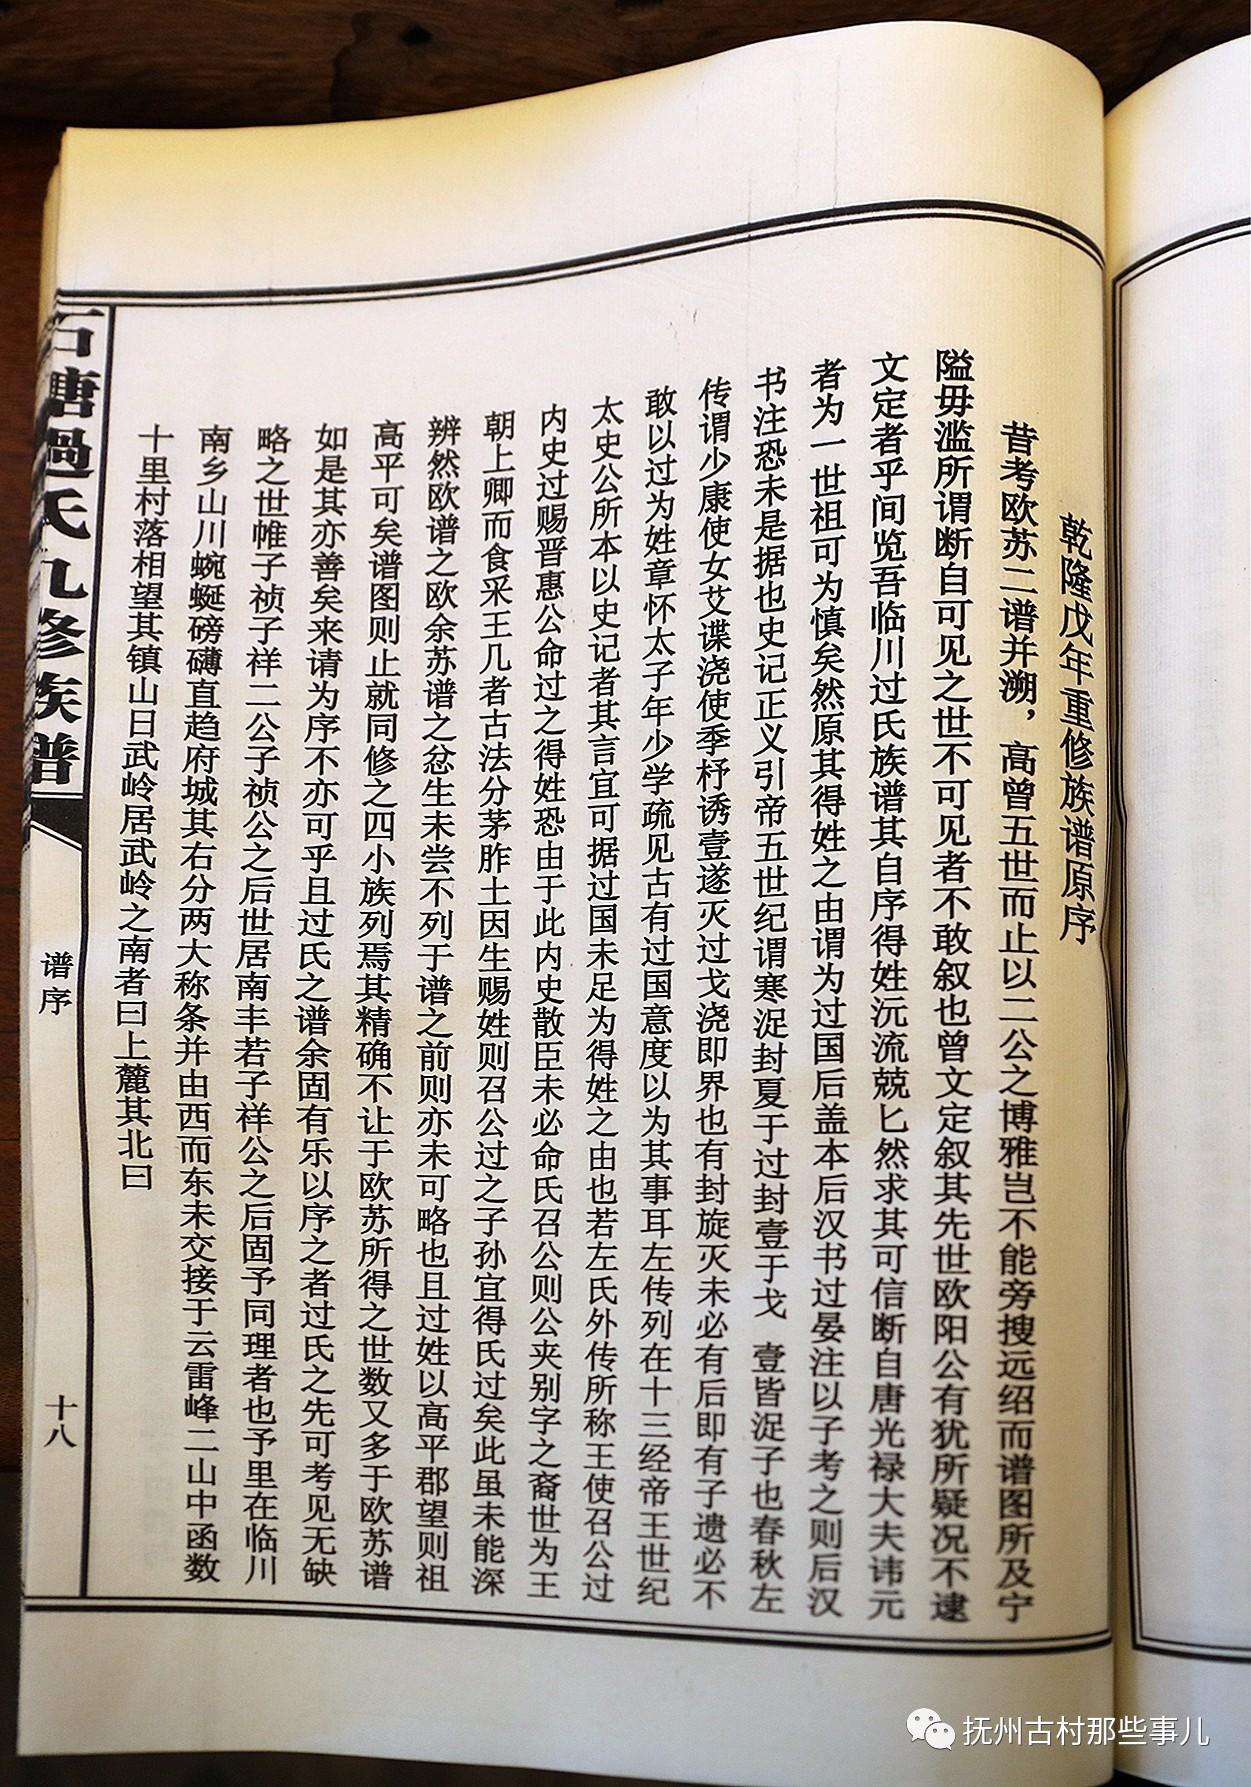 乾隆戊年重修族谱原序
昔考欧苏二谱并溯，高曾五世而止以二公之博雅岂不能旁搜远绍而谱图所及宁
隘毋滥所谓断自可见之世不可见者不敢叙也曾文定叙其先世欧阳公有犹所疑况不逮
文定者乎间览吾临川过氏族谱其自序得姓沅流兢匕然求其可信断自唐光禄大夫讳元
者为一世祖可为慎矣然原其得姓之由谓为过国后盖本后汉书过晏注以子考之则后汉
书注恐未是据也史记正义引帝五世纪谓寒浞封夏于过封壹于戈 壹皆浞子也春秋左
传谓少康使女艾谍浇使季杼诱壹遂灭过戈浇即界也有封旋灭未必有后即有子遗必不
敢以过为姓章怀太子年少学疏见古有过国意度以为其事耳左传列在十三经帝王世纪
太史公所本以史记者其言宜可据过国未足为得姓之由也若左氏外传所称王使召公过
内史过赐晋惠公命过之得姓恐由于此内史散臣未必命氏召公则公夹别字之裔世为王
朝上卿而食采王几者古法分茅胙土因生赐姓则召公过之子孙宜得氏过矣此虽未能深
辨然欧谱之欧余苏谱之忿生未尝不列于谱之前则亦未可略也且过姓以高平郡望则祖
高平可矣谱图则止就同修之四小族列焉其精确不让于欧苏所得之世数又多于欧苏谱
如是其亦善矣来请为序不亦可乎且过氏之谱余固有乐以序之者过氏之先可考见无缺
略之世帷子祯子祥二公子祯公之后世居南丰若子祥公之后固予同理者也予里在临川
南乡山川蜿蜒磅礴直趋府城其右分两大称条并由西而东未交接于云雷峰二山中函数
十里村落相望其镇山日武岭居武岭之南者曰上麓其北曰
石塘過氏九修族谱
谱序
十八
抚州古村那些事儿